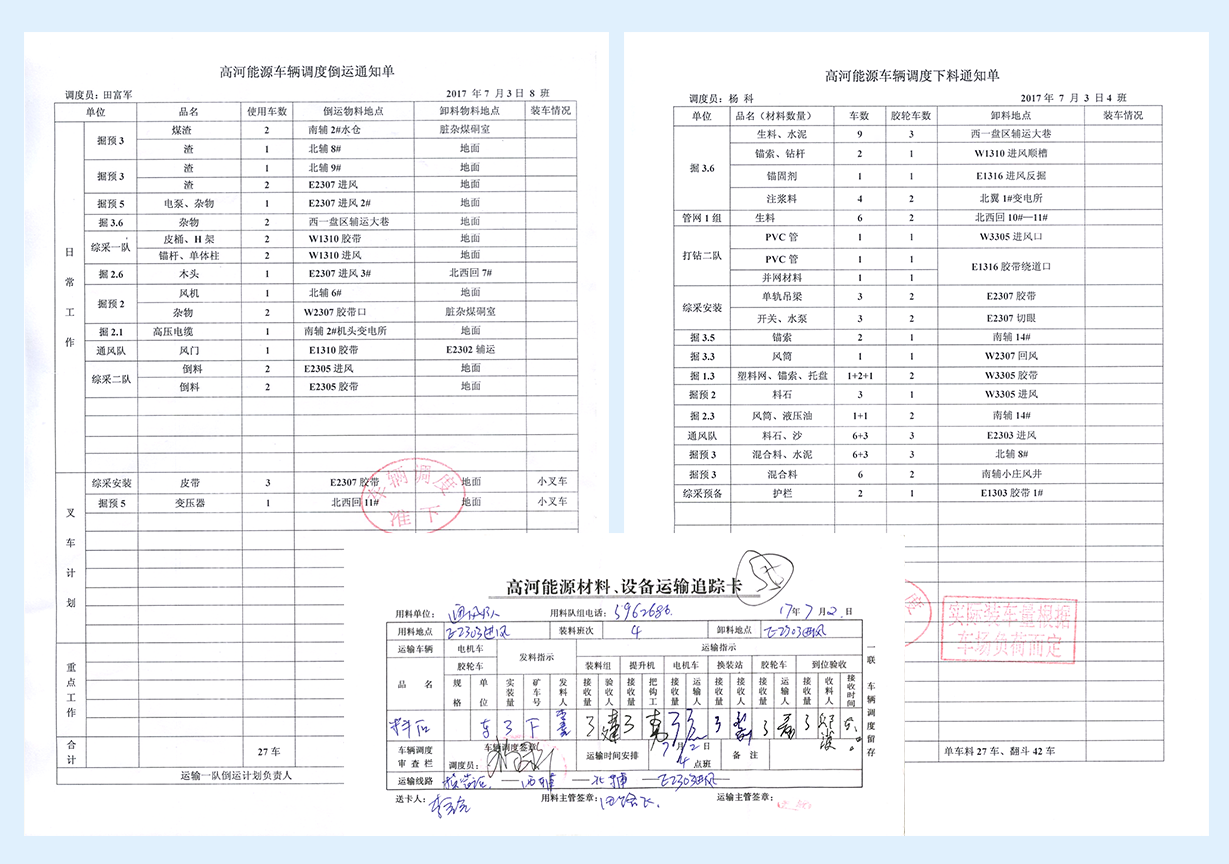 高河能源车辆调度倒运通知单
调度员：田富军 2017 年 7 月 3 日 8 班
单位 品名 使用车数 倒运物料地点 卸料物料地点 装车情况
日常工作
掘预 3 煤渣 2 南辅 2#水仓 脏杂煤硐室
渣 1 北辅 8# 地面
掘预 3 渣 1 北辅 9# 地面
渣 2 E2307 进风 地面
掘预 5 电泵、杂物 1 E2307 进风 2# 地面
掘 3.6 杂物 2 西一盘区辅运大巷 地面
综采一队 皮桶、H 架 2 W1310 胶带 地面
锚杆、单体柱 2 W1310 进风 地面
掘 2.6 木头 1 E2307 进风 3# 北西回 7#
掘预 2 风机 1 北辅 6# 地面
杂物 2 W2307 胶带口 脏杂煤硐室
掘 2.1 高压电缆 1 南辅 2#机头变电所 地面
通风队 风门 1 E1310 胶带 E2302 辅运
综采二队 倒料 2 E2305 进风 地面
倒料 2 E2305 胶带 地面
叉车计划
综采安装 皮带 3 E2307 胶带 地面 小叉车
掘预 5 变压器 1 北西回 11# 地面 小叉车
车辆调度
准下
重点工作
合计 27 车
运输一队倒运计划负责人
高河能源车辆调度下料通知单
调度员：杨 科 2017 年 7 月 3 日 4 班
单位 品名（材料数量） 车数 胶轮车数 卸料地点 装车情况
掘 3.6 生料、水泥 9 3 西一盘区辅运大巷
锚索、钻杆 2 1 W1310 进风顺槽
锚固剂 1 1 E1316 进风反掘
注浆料 4 2 北翼 1#变电所
管网 1 组 生料 6 2 北西回 10#—11#
打钻二队 PVC 管 1 1 W3305 进风口
PVC 管 1 1 E1316 胶带绕道口
并网材料 1 1
综采安装 单轨吊梁 3 2 E2307 胶带
开关、水泵 3 2 E2307 切眼
掘 3.5 锚索 2 1 南辅 14#
掘 3.3 风筒 1 1 W2307 回风
掘 1.3 塑料网、锚索、托盘 1+2+1 2 W3305 胶带
掘预 2 料石 3 1 W3305 进风
掘 2.3 风筒、液压油 1+1 2 南辅 14#
通风队 料石、沙 6+3 3 E2303 进风
掘预 3 混合料、水泥 6+3 3 北辅 8#
掘预 3 混合料 6 2 南辅小庄风井
综采预备 护栏 2 1 E1303 胶带 1#
度
实际装车量根据
车场负荷而定
单车料 27 车、翻斗 42 车
高河能源材料、设备运输追踪卡
用料单位：通风队 用料队组电话：5962686. 17年 7月2.日
用料地点 E2303进风 装料班次 4 卸料地点 E2303进风
运输车辆 电机车 发料指示 运输指示
胶轮车 装料组 提升机 电机车 换装站 胶轮车 到位验收
品 名 规格 单位 实装量 矿车号 发料人 接收量 验收人 接收量 把钩工 接收量 运输人 接收量 接收人 接收量 运输人 接收量 收料人 接收时间
料石 车 3 下 3 3 3 3 3 3
车辆调度审查栏 车辆调度签章： 调度员： 运输时间安排 7月2日 4点班 备 注
运输线路 —西辅—北辅—E2303进风
送卡人： 用料主管签章： 运输主管签章：
一联 车辆调度留存